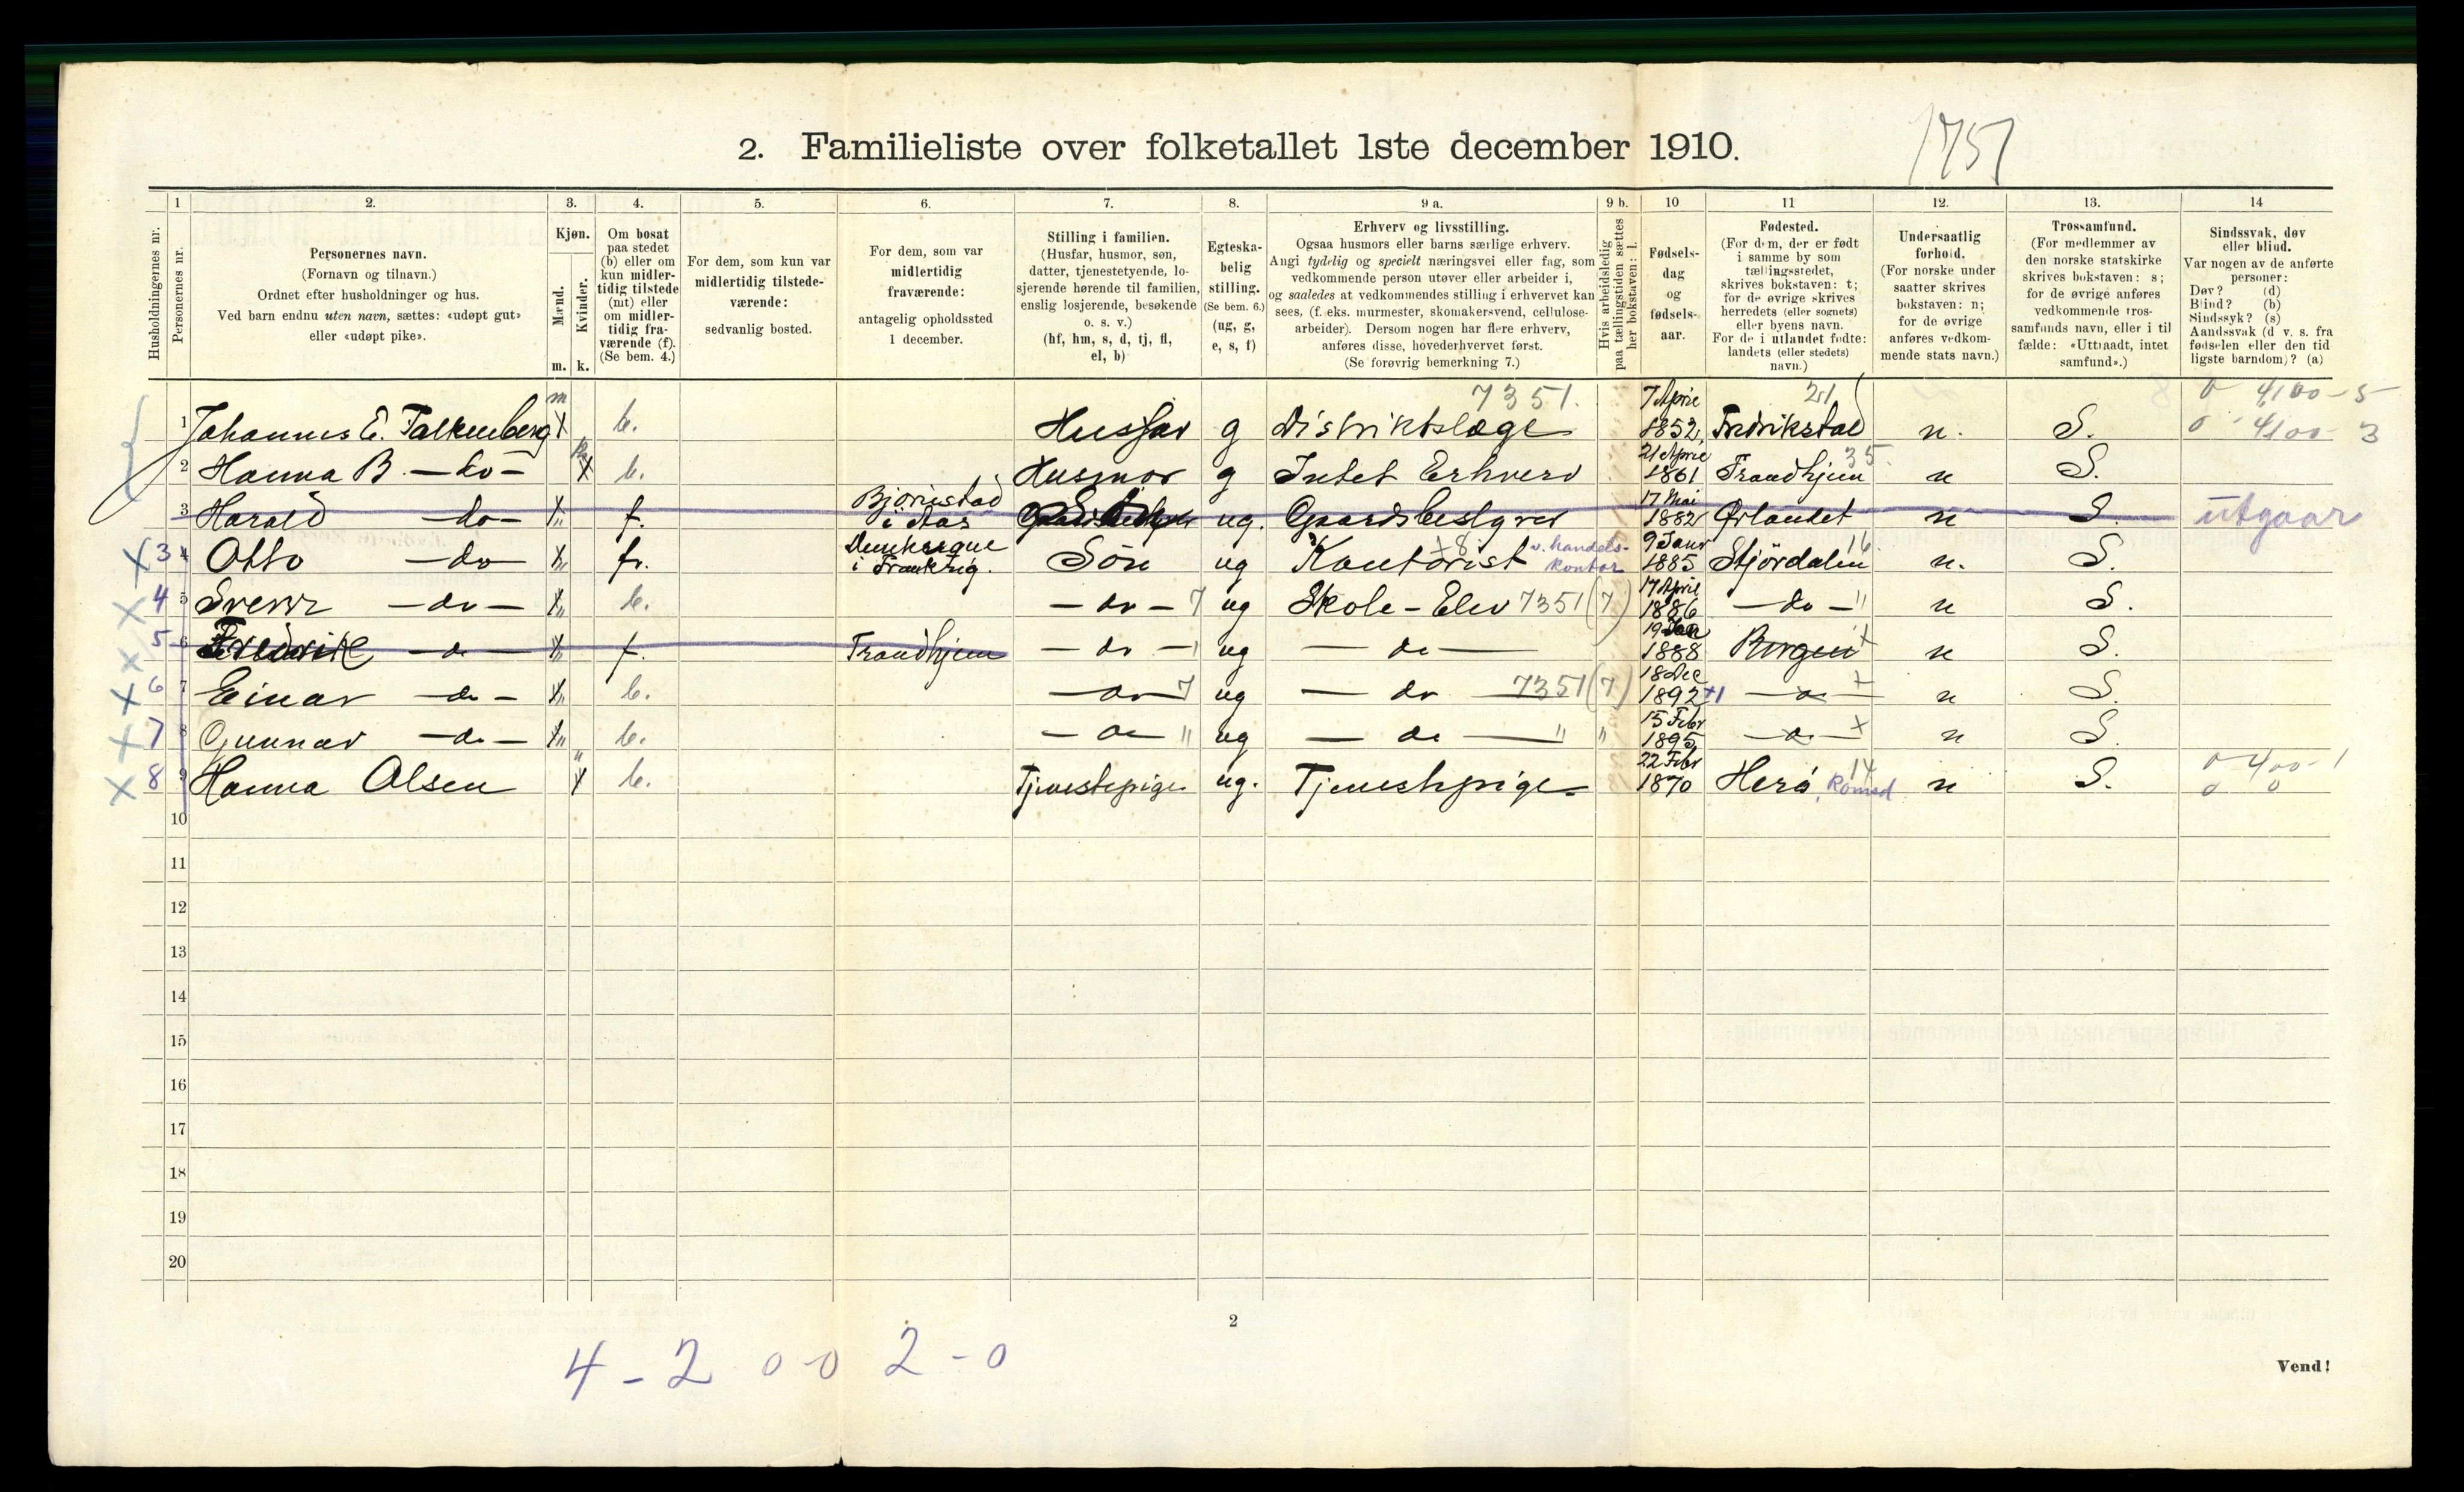 2. Familieliste over folketallet 1ste december 1910.
1751
1 2. 3. 4. 5. 6. 7. 8. 9 a. 9 b. 10 11 12. 13. 14
Husholdningernes nr.
Personernes nr.
Personernes navn.
(Fornavn og tilnavn.)
Ordnet efter husholdninger og hus.
Ved barn endnu uten navn, sættes: «udøpt gut»
eller «udøpt pike».
Kjøn.
Mænd.
Kvinder.
m. k.
Om bosat
paa stedet
(b) eller om
kun midler-
tidig tilstede
(mt) eller
om midler-
tidig fra-
værende (f).
(Se bem. 4.)
For dem, som kun var
midlertidig tilstede-
værende:
sedvanlig bosted.
For dem, som var
midlertidig
fraværende:
antagelig opholdssted
1 december.
Stilling i familien.
(Husfar, husmor, søn,
datter, tjenestetyende, lo-
sjerende hørende til familien,
enslig losjerende, besøkende
o. s. v.)
(hf, hm, s, d, tj, fl,
el, b)
Egteska-
belig
stilling.
(Se bem. 6.)
(ug, g,
e, s, f)
Erhverv og livsstilling.
Ogsaa husmors eller barns særlige erhverv.
Angi tydelig og specielt næringsvei eller fag, som
vedkommende person utøver eller arbeider i,
og saaledes at vedkommendes stilling i erhvervet kan
sees, (f. eks. murmester, skomakersvend, cellulose-
arbeider). Dersom nogen har flere erhverv,
anføres disse, hovederhvervet først.
(Se forøvrig bemerkning 7.)
Hvis arbeidsledig
paa tællingstiden sættes
her bokstaven: l.
Fødsels-
dag
og
fødsels-
aar.
Fødested.
(For dem, der er født
i samme by som
tællingsstedet,
skrives bokstaven: t;
for de øvrige skrives
herredets (eller sognets)
eller byens navn.
For de i utlandet fødte:
landets (eller stedets)
navn.)
Undersaatlig
forhold.
(For norske under
saatter skrives
bokstaven: n;
for de øvrige
anføres vedkom-
mende stats navn.)
Trossamfund.
(For medlemmer av
den norske statskirke
skrives bokstaven: s;
for de øvrige anføres
vedkommende tros-
samfunds navn, eller i til
fælde: «Uttraadt, intet
samfund».)
Sindssvak, døv
eller blind.
Var nogen av de anførte
personer:
Døv? (d)
Blind? (b)
Sindssyk? (s)
Aandssvak (d v. s. fra
fødselen eller den tid
ligste barndom)? (a)
m 7351. 7 April 21 0 4100-5
1 Johannes E. Falkenberg X b. Husfar g Distriktslæge 1852, Fredrikstad n. S. 0 4100-3
k 21 April 35.
2 Hanna B. — do — X b. Husmor g Intet Erhverv 1861 Trondhjem n S.
Bjørnstad 17 Mai
3 Harald — do — X f. i Aas ug. Gaardsbestyrer 1882 Ørlandet n S. utgaar
Dunkerque +8 v. handels- 9 Janr 16.
X 3 4 Otto — do X f. i Frankrig. Søn ug Kontorist kontor 1885 Stjördalen n. S.
17 April
X 4 5 Sverr — do — X b. — do — 7 ug Skole-Elev 7351 (7) 1886 — do — " n S.
19 Jan
X 5 6 Fredrik — do — X f. Trondhjem — do — ug — do — 1888 Bergen + n S.
18 Dec
X 6 7 Einar — do — X b. — do — 7 ug — do — 7351 (7) 1892 +1 — do — + n S.
15 Febr
X 7 8 Gunnar — do — X b. — do — " ug — do — " " 1895 — do — + n S.
" 22 Febr 14 0 400-1
X 8 9 Hanna Olsen X b. Tjenestepige ug. Tjenestepige 1870 Herø, Romsd n S. 0 0
10
11
12
13
14
15
16
17
18
19
20
2
4 - 2 0-0 2 - 0
Vend!